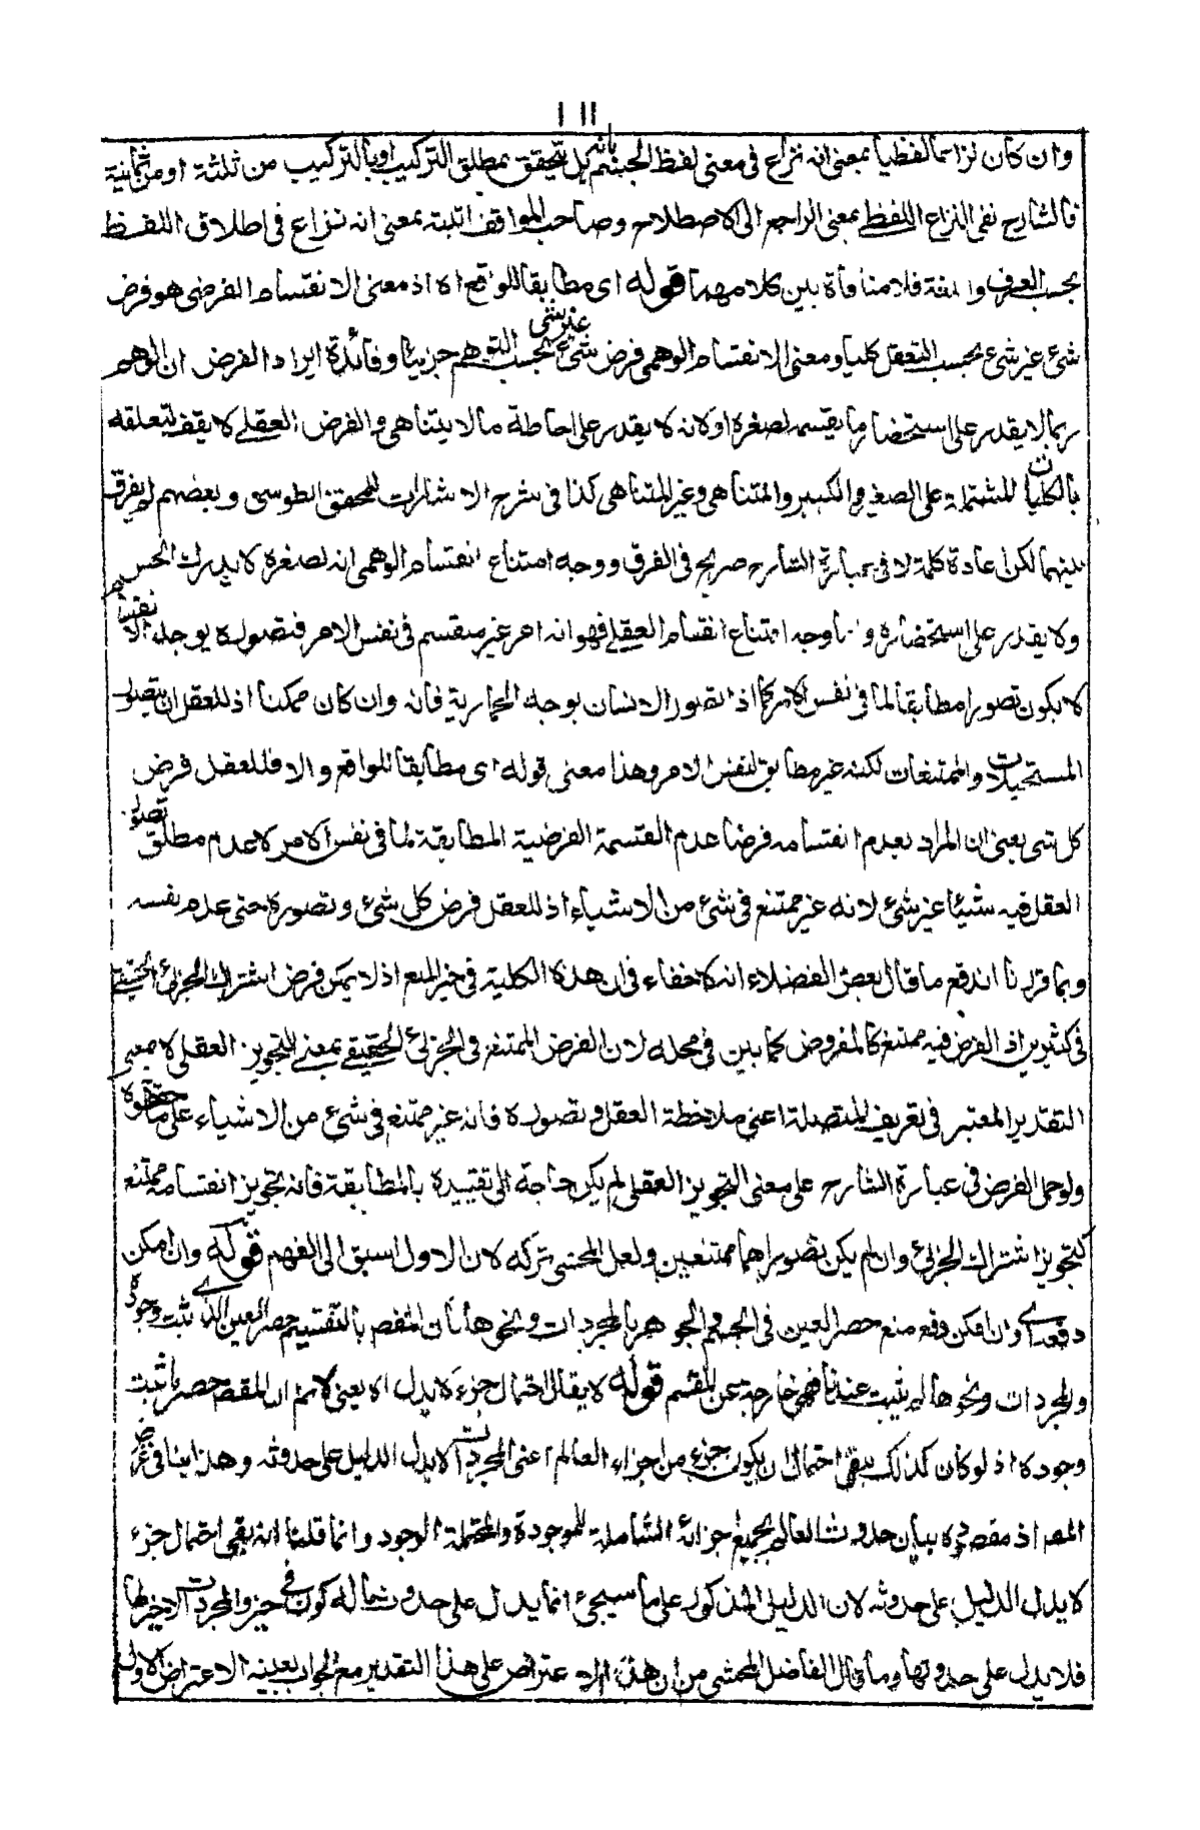 ١١١
وان كان نزاعا لفظيا بمعنى انه نزاع فى معنى لفظ الجسم بانه هل يتحقق بمطلق التركيب او بالتركيب من ثلثة او من ثمانية
فالشارح نفى النزاع اللفظى بمعنى الراجع الى الاصطلاح وصاحب المواقف اثبته بمعنى انه نزاع فى اطلاق اللفظ
بحسب العرف واللغة فلا منافاة بين كلامهما قوله اى مطابقا للواقع اه اذ معنى الانقسام الفرضى هو فرض
شئ غير شئ بحسب التعقل كليا ومعنى الانقسام الوهمى فرض شئ غير شئ بحسب التوهم جزئيا وفائدة ايراد الفرض ان الوهم
ربما لا يقدر على استحضار ما يقسمه لصغره او لانه لا يقدر على احاطة ما لا يتناهى والفرض العقلى لا يقف لتعلقه
بالكليات المشتملة على الصغير والكبير والمتناهى وغير المتناهى كذا فى شرح الاشارات للمحقق الطوسى وبعضهم لم يفرق
بينهما لكن اعادة كلمة لا فى عبارة الشارح صريح فى الفرق ووجه امتناع انقسام الوهمى انه لصغره لا يدركه الحس
ولا يقدر على استحضاره واما وجه امتناع انقسام العقلى فهو انه امر غير منقسم فى نفس الامر فتصوره بوجه الانقسام
لا يكون تصورا مطابقا لما فى نفس الامر كما اذا تصور الانسان بوجه الحمارية فانه وان كان ممكنا اذ للعقل ان يتصور
المستحيلات والممتنعات لكنه غير مطابق لنفس الامر وهذا معنى قوله اى مطابقا للواقع والا فللعقل فرض
كل شئ يعنى ان المراد بعدم انقسامه فرضا عدم القسمة الفرضية المطابقة لما فى نفس الامر لا عدم مطلق تصور
العقل فيه شيئا غير شئ لانه غير ممتنع فى شئ من الاشياء اذ للعقل فرض كل شئ وتصوره حتى عدم نفسه
وبما قررنا اندفع ما قال بعض الفضلاء انه لا خفاء فى ان هذه الكلية فى حيز المنع اذ لا يمكن فرض اشتراك الجزئى الحقيقى
فى كثيرين اذ الفرض فيه ممتنع كالمفروض كما بين فى محله لان الفرض الممتنع فى الجزئى الحقيقى بمعنى التجويز العقلى لا بمعنى
التقدير المعتبر فى تعريف المتصلة اعنى ملاحظة العقل وتصوره فانه غير ممتنع فى شئ من الاشياء على ما حققوه
ولو حمل الفرض فى عبارة الشارح على معنى التجويز العقلى لم يكن حاجة الى تقييده بالمطابقة فانه تجويز انقسامه ممتنع
كتجويز اشتراك الجزئى وان لم يكن تصورهما ممتنعين ولعل المحشى تركه لان الاول اسبق الى الفهم قوله وان امكن
دفعه اى وان امكن دفع منع حصر العين فى الجسم والجوهر بالمجردات ونحوها بان المقصم بالتقسيم حصر العين الذى ثبت وجوده
والمجردات ونحوها لم يثبت عندنا فهى خارجة عن المقسم قوله لا يقال احتمال جزء لا يدل اه يعنى لا نم ان المقصم حصر ما ثبت
وجوده اذ لو كان كذلك يبقى احتمال ان يكون جزء من اجزاء العالم اعنى المجردات لا يدل الدليل على حدوثه وهذا ينافى غرض
المصم اذ مقصوده بيان حدوث العالم بجميع اجزائه الشاملة للموجودة والمحتملة الوجود وانما قلنا انه يبقى احتمال جزء
لا يدل الدليل على حدوثه لان الدليل المذكور على ما سيجئ انما يدل على حدوث ما له كون فى حيز والمجردات لا حيز لها
فلا يدل على حدوثها وما قال الفاضل المحشى من ان هذا اعتراض على هذا التقدير مع الجواب بعينه الاعتراض الاول